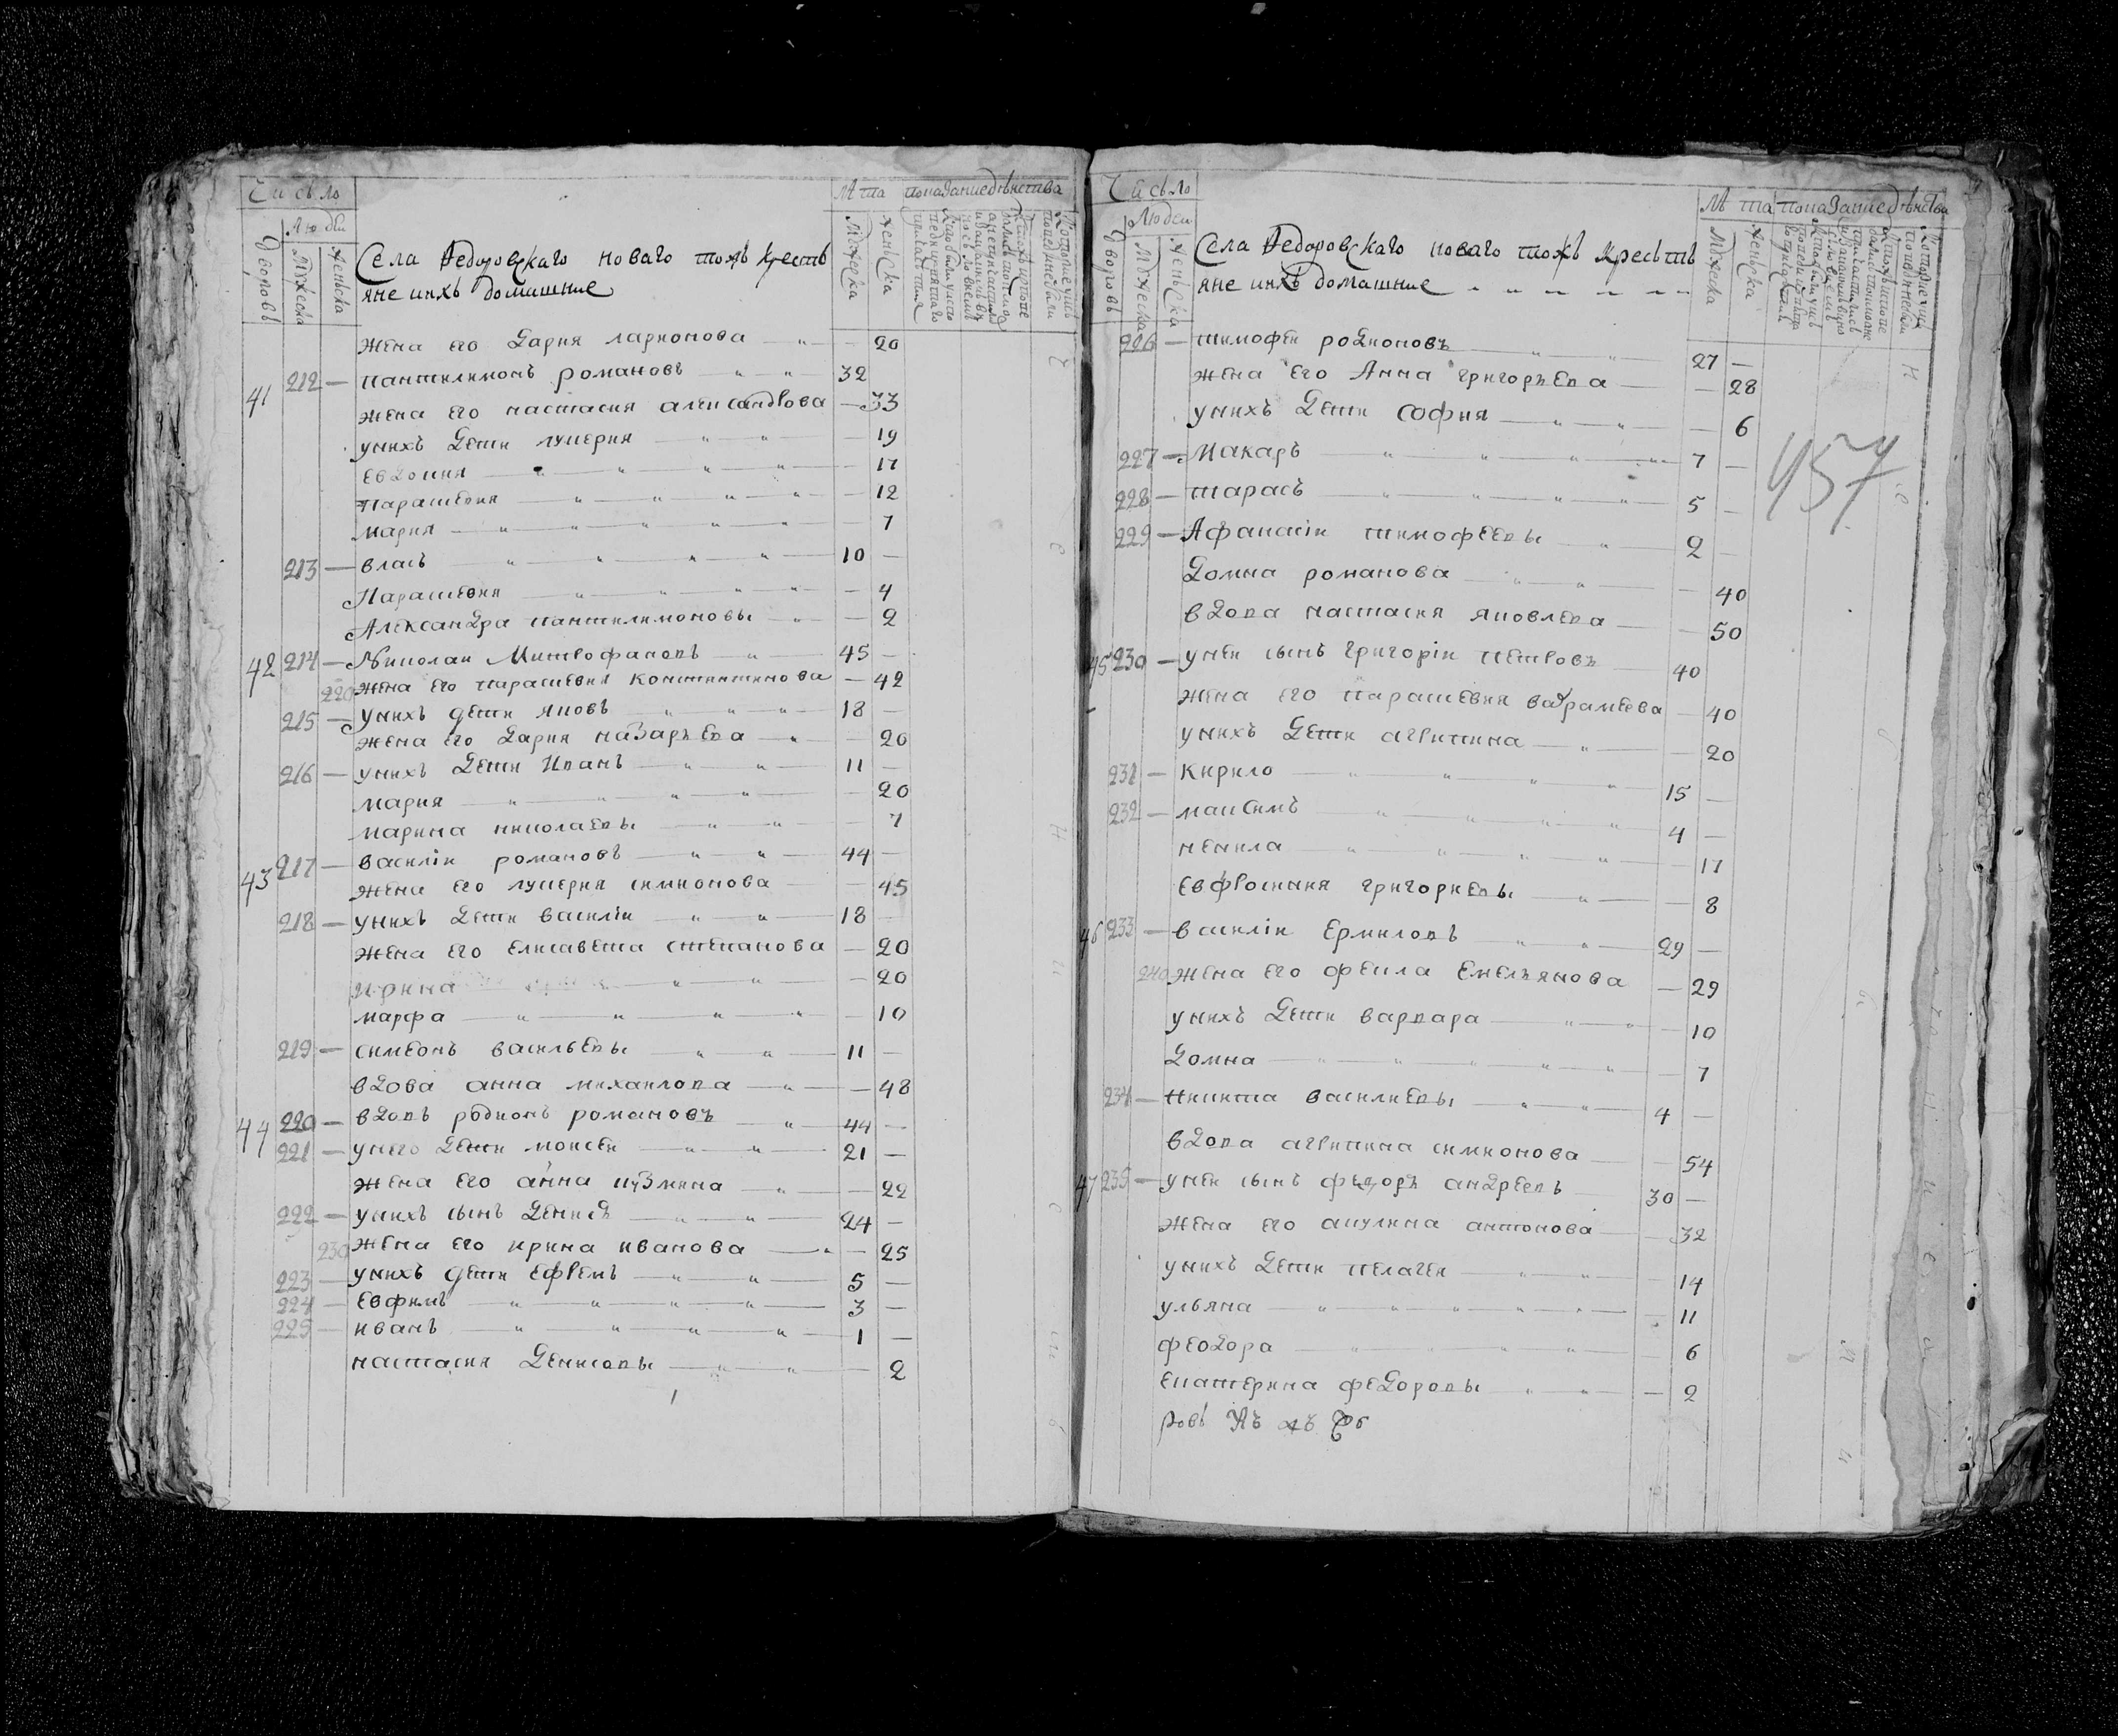 Число
Людей
Дворовъ
Мужеска
Женьска
Села Федоровскаго новаго тожъ крестъ
яне ихъ домашние
Мужеска
Женьска
жена его Дария ларионова — 20
41 212 — пантилимонъ романовъ 32
жена его настасия александрова — 33
у нихъ дети лукерия — 19
евдокия — 17
парасковия — 12
мария — 7
213 — власъ 10 —
Парасковия — 4
Александра пантилимоновы — 2
42 214 — Николаи Митрофановъ 45 —
220 жена его парасковия константинова — 42
215 — у нихъ дети яковъ 18 —
жена его Дария назарьева — 20
216 — у нихъ дети Иванъ 11 —
мария — 20
марина николаевы — 7
43 217 — василіи романовъ 44 —
жена его лукерия симионова — 45
218 — у нихъ дети василіи 18 —
жена его елисавета степанова — 20
ирина — 20
марфа — 10
219 — симеонъ васильевы 11 —
вдова анна михаилова — 48
44 220 — вдовъ родионъ романовъ 44 —
221 — у него дети моисеи 21 —
жена его анна кузмина — 22
222 — у нихъ сынъ Денисъ 24 —
230 жена его ирина иванова — 25
223 — у нихъ дети ефремъ 5 —
224 — Евфимъ 3 —
225 — иванъ 1 —
настасия Денисовы — 2
Число
Людей
Дворовъ
Мужеска
Женьска
Села Федоровскаго новаго тожъ Кресьтъ
яне ихъ домашние
Мужеска
Женьска
226 — тимофеи родионовъ 27 —
жена его Анна григорьева — 28
у нихъ дети София — 6
227 — Макаръ 7 —
457
228 — тарасъ 5 —
229 — Афанасіи тимофеевы 2 —
Домна романова — 40
вдова настасия яковлева — 50
45 230 — у неи сынъ григоріи петровъ 40
жена его парасковия варамеева — 40
у нихъ дети агрипина — 20
231 — Кирило 15 —
232 — максимъ 4 —
ненила — 17
евфросиния григориевы — 8
46 233 — василіи Ермиловъ 29 —
240 жена его фекла Емельянова — 29
у нихъ дети варвара — 10
Домна — 7
234 — Никита василиевы 4 —
вдова агрипина симионова — 54
47 235 — у неи сынъ федоръ андреевъ 30 —
жена его акулина антонова — 32
у нихъ дети пелагеи — 14
ульяна — 11
феодора — 6
екатерина федоровы — 2